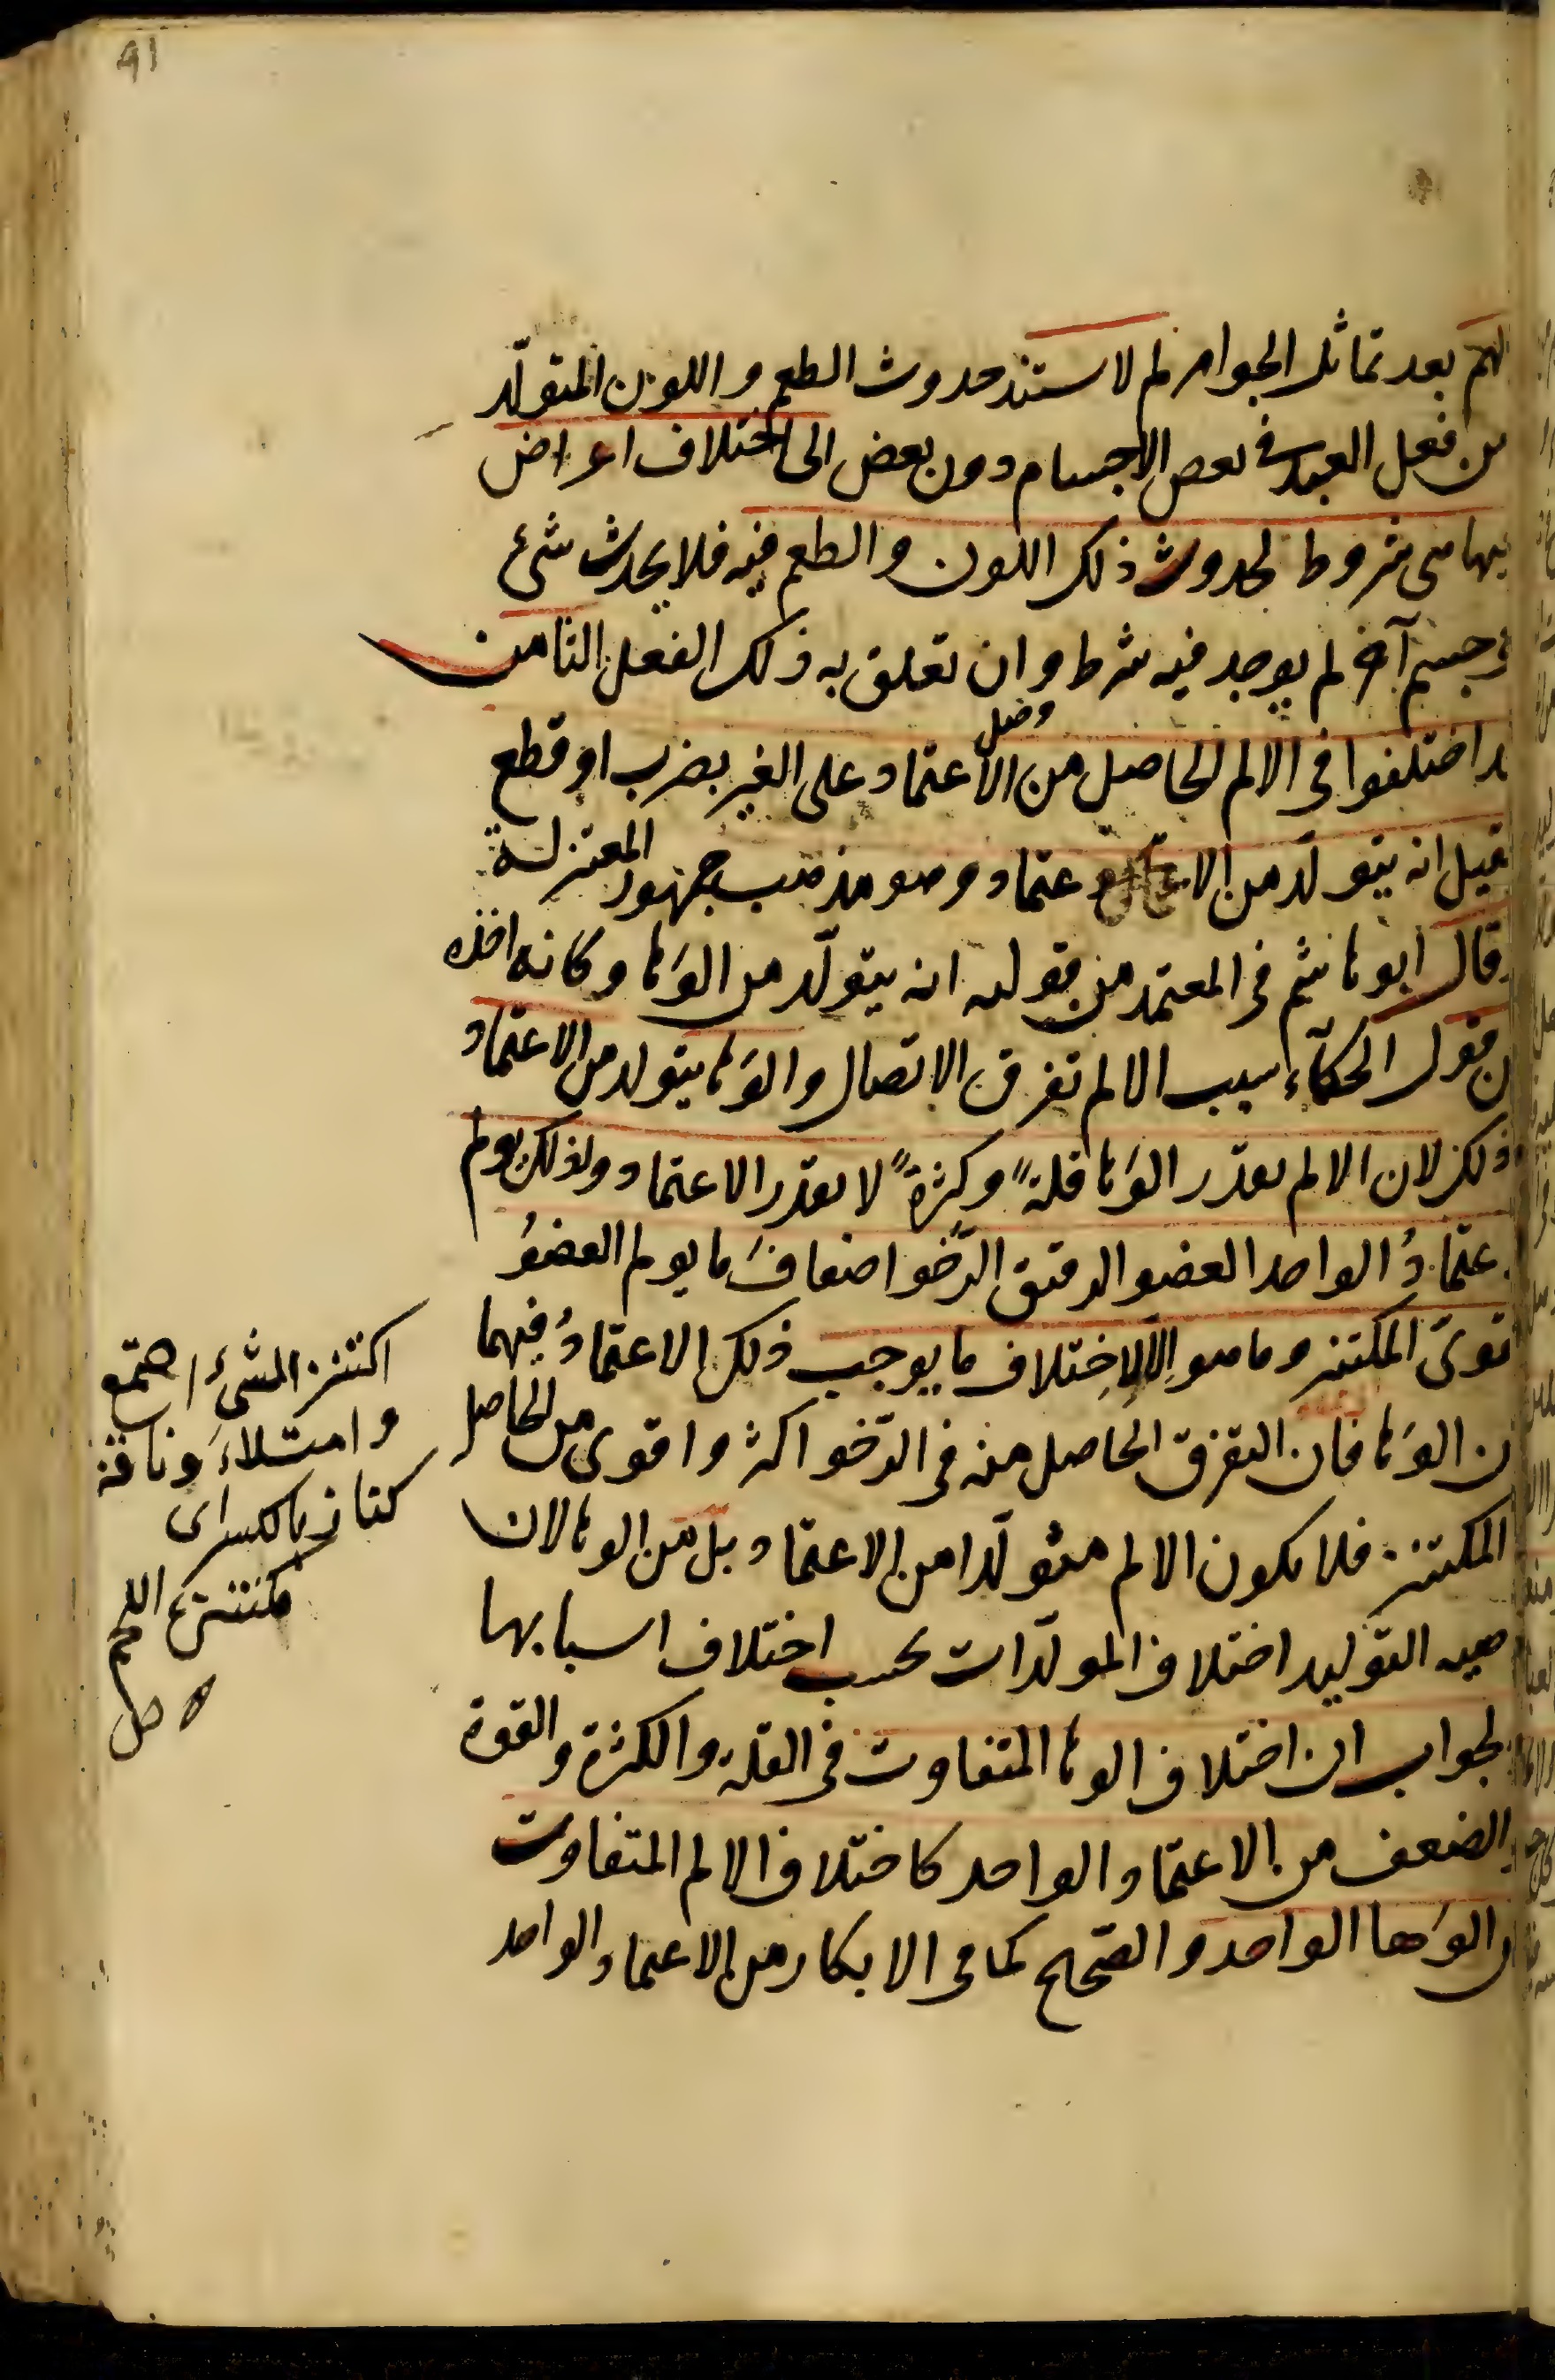 91
لهم بعد تماثل الجواهر لم لا يستند حدوث الطعم واللون المتولّد
من فعل العبد في بعض الاجسام دون بعض الى اختلاف اعراض
فيها هى شروط لحدوث ذلك اللون والطعم فيه فلا يحدث شئ
فى جسم آخر لم يوجد فيه شرط وان تعلق به ذلك الفعل الثامن
قد اختلفوا فى الالم الحاصل من الاعتماد على الغير بضرب او قطع
فقيل انه يتولّد من الاعتماد وهو مذهب جمهور المعتزلة
وقال ابو هاشم فى المعتمد من قوليه انه يتولّد من الوَها وكانه اخذه
من قول الحكماء سبب الالم تفرق الاتصال والوَها يتولد من الاعتماد
وذلك لان الالم بقدر الوَها قلةً وكثرةً لا بقدر الاعتماد ولذلك يولم
الاعتمادُ الواحد العضو الرقيق الرّخو اضعافَ ما يولم العضوُ
القوىَ المكتنز وما هو الّا لاِختلاف ما يوجب ذلك الاعتمادُ فيهما
من الوَها فان التفرق الحاصل منه فى الرّخو اكثر واقوى من الحاصل
المكتنز فلا يكون الالم متولّدا من الاعتماد بل من الوها لان
التوليد اختلاف المولّدات بحسب اختلاف اسبابها
الجواب ان اختلاف الوها المتفاوت فى القلة والكثرة والقوة
والضعف من الاعتماد الواحد كاختلاف الالم المتفاوت
من الوَها الواحد والصحيح كما فى الابكار من الاعتماد الواحد
اكتنز الشئ اجتمع
وامتلاءَ وناقة
كناز بالكسر اى
مكتنزة اللحم